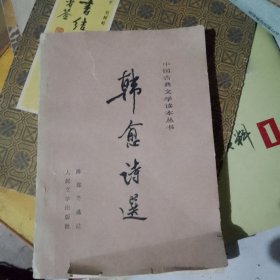 中国古典文学读本丛书
韩愈诗選
陈迩冬选注
人民文学出版社
料1